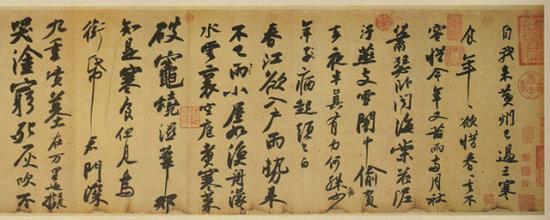 自我來黃州已過三寒
食年〻欲惜春〻去不
容惜今年又苦雨兩月秋
蕭瑟臥聞海棠花泥
汙燕支雪闇中偷負
去夜半真有力何殊少
年子病起頭已白
春江欲入戶雨勢來
不已雨小屋如漁舟濛〻
水雲裏空庖煮寒菜
破竈燒濕葦那
知是寒食但見烏
銜帋君門深
九重墳墓在萬里也擬
哭塗窮死灰吹不